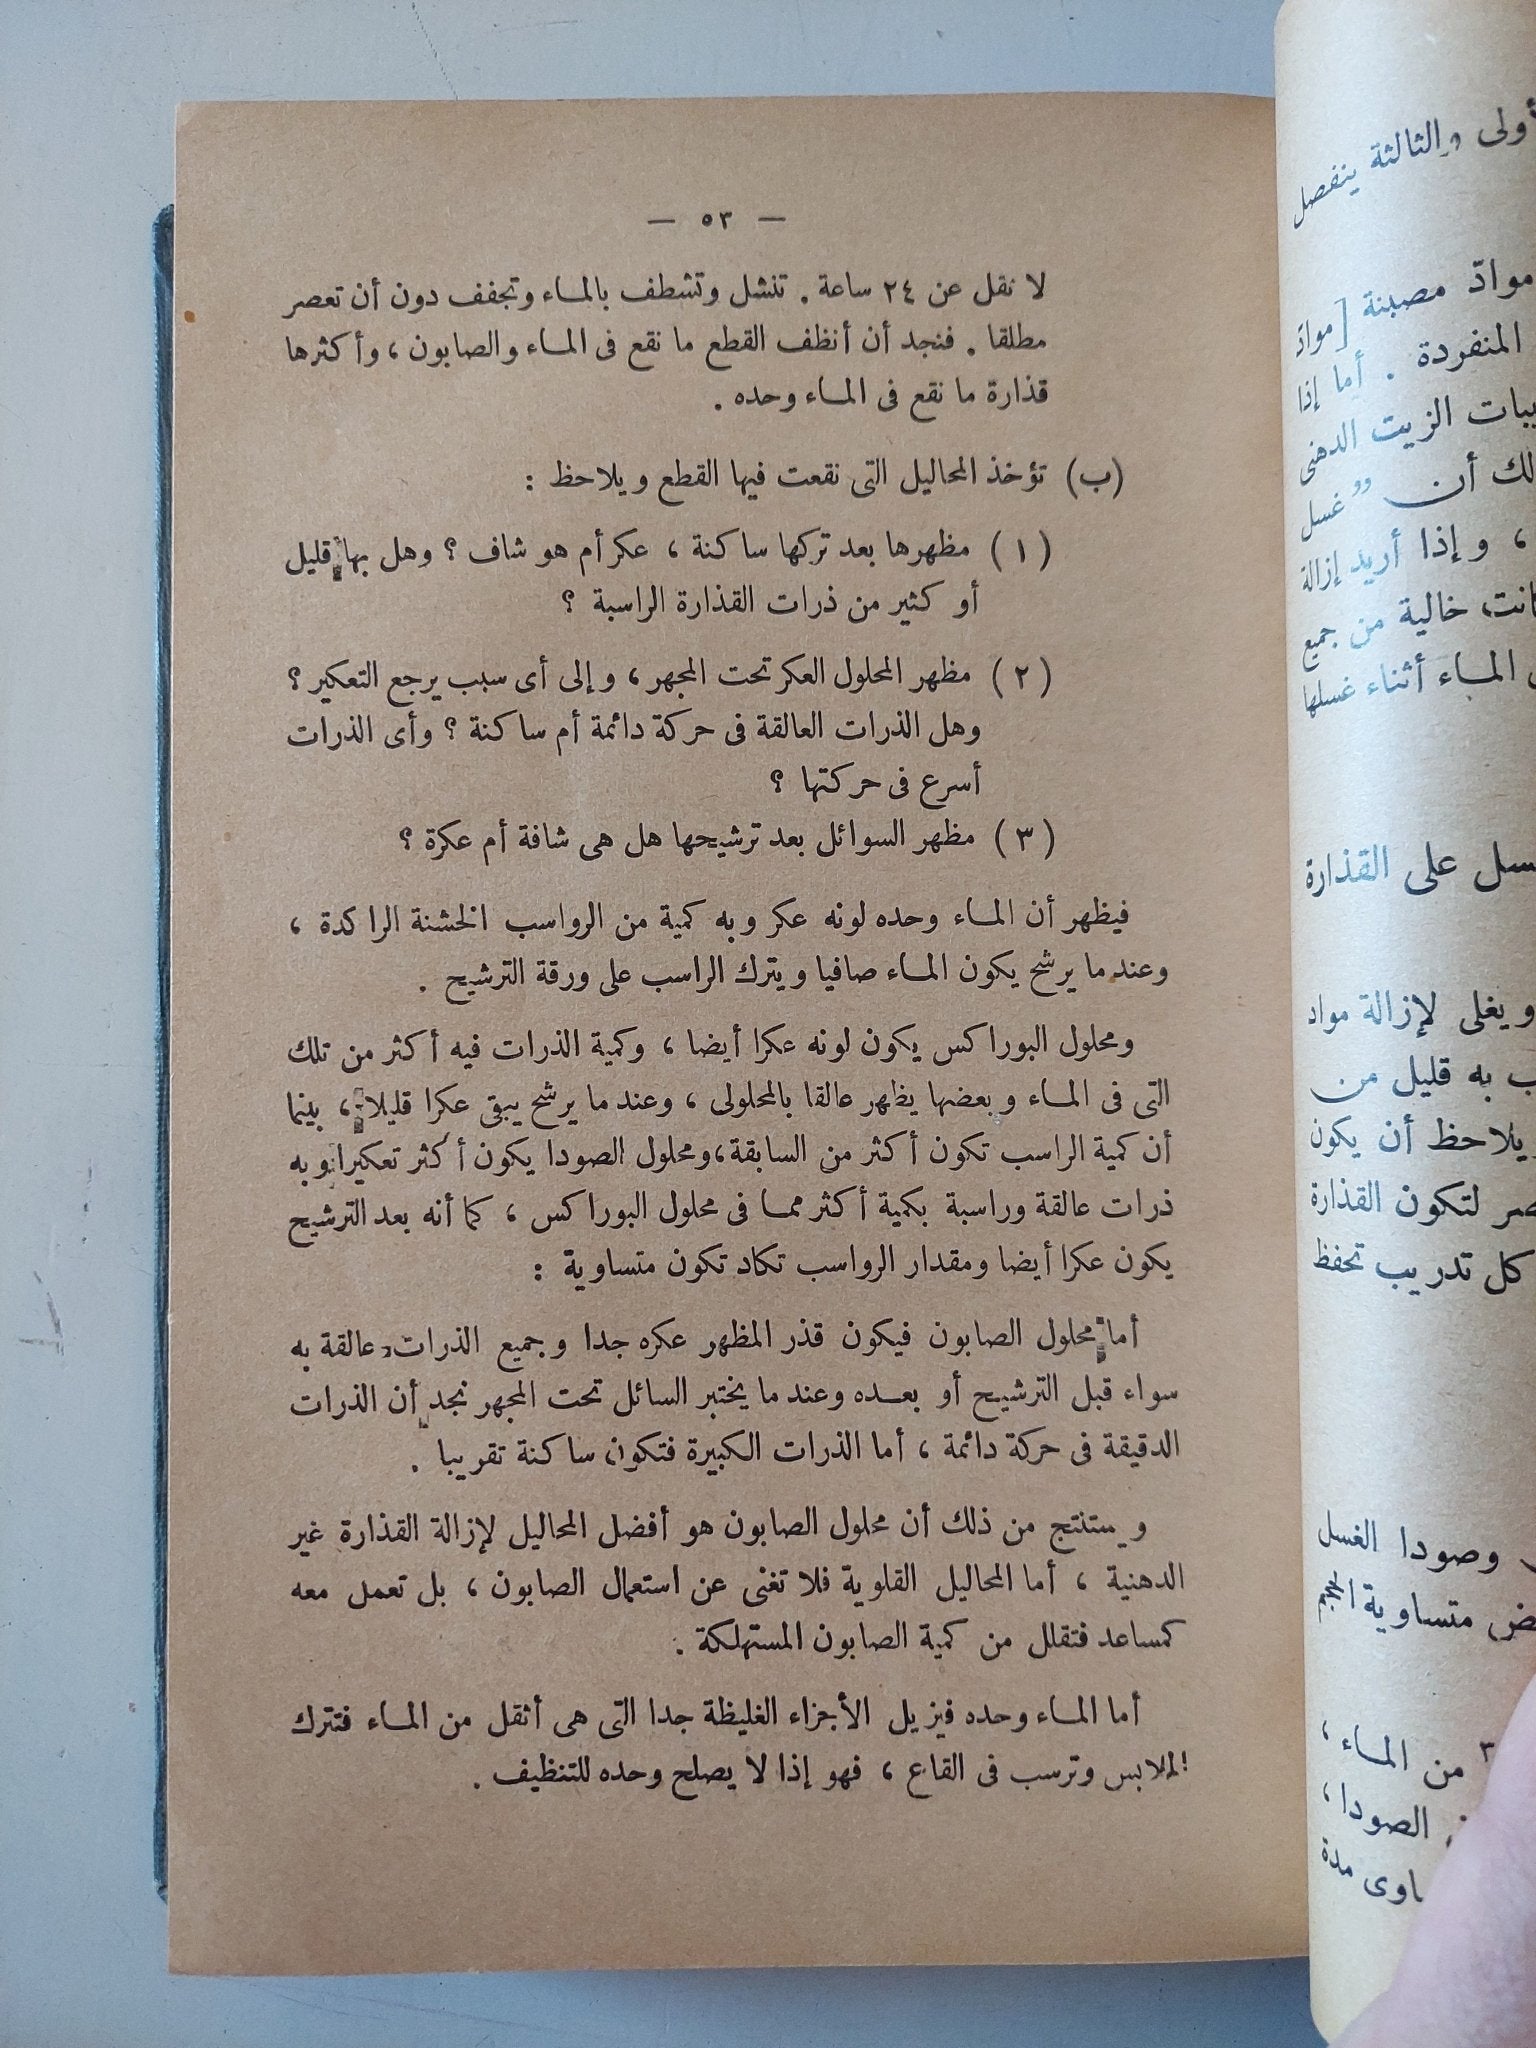 — ٥٣ —
لا نقل عن ٢٤ ساعة . تنشل وتشطف بالماء وتجفف دون أن تعصر
مطلقا . فنجد أن أنظف القطع ما نقع فى الماء والصابون ، وأكثرها
قذارة ما نقع فى الماء وحده .
(ب) تؤخذ المحاليل التى نقعت فيها القطع ويلاحظ :
(١) مظهرها بعد تركها ساكنة ، عكر أم هو شاف ؟ وهل بها قليل
أو كثير من ذرات القذارة الراسبة ؟
(٢) مظهر المحلول العكر تحت المجهر ، وإلى أى سبب يرجع التعكير ؟
وهل الذرات العالقة فى حركة دائمة أم ساكنة ؟ وأى الذرات
أسرع فى حركتها ؟
(٣) مظهر السوائل بعد ترشيحها هل هى شافة أم عكرة ؟
فيظهر أن الماء وحده لونه عكر وبه كمية من الرواسب الخشنة الراكدة ،
وعند ما يرشح يكون الماء صافيا ويترك الراسب على ورقة الترشيح .
ومحلول البوراكس يكون لونه عكرا أيضا ، وكمية الذرات فيه أكثر من تلك
التى فى الماء وبعضها يظهر عالقا بالمحلولى ، وعند ما يرشح يبقى عكرا قليلا ، بينما
أن كمية الراسب تكون أكثر من السابقة، ومحلول الصودا يكون أكثر تعكيرا وبه
ذرات عالقة وراسبة بكمية أكثر مما فى محلول البوراكس ، كما أنه بعد الترشيح
يكون عكرا أيضا ومقدار الرواسب تكاد تكون متساوية :
أما محلول الصابون فيكون قذر المظهر عكره جدا وجميع الذرات عالقة به
سواء قبل الترشيح أو بعده وعند ما يختبر السائل تحت المجهر نجد أن الذرات
الدقيقة فى حركة دائمة ، أما الذرات الكبيرة فتكون ساكنة تقريبا .
ويستنتج من ذلك أن محلول الصابون هو أفضل المحاليل لإزالة القذارة غير
الدهنية ، أما المحاليل القلوية فلا تغنى عن استعمال الصابون ، بل تعمل معه
كمساعد فتقلل من كمية الصابون المستهلكة .
أما الماء وحده فيزيل الأجزاء الغليظة جدا التى هى أثقل من الماء فتترك
الملابس وترسب فى القاع ، فهو إذا لا يصلح وحده للتنظيف .
والثالثة ينفصل
موادّ مصبنة [موادّ
المنفردة . أما إذا
الزيت الدهنى
أن " غسل
، وإذا أريد إزالة
خالية من جميع
الماء أثناء غسلها
على القذارة
ويغلى لإزالة مواد
به قليل من
يلاحظ أن يكون
لتكون القذارة
كل تدريب تحفظ
وصودا الغسل
متساوية الحجم
٣ من الماء ،
الصودا ،
مدة